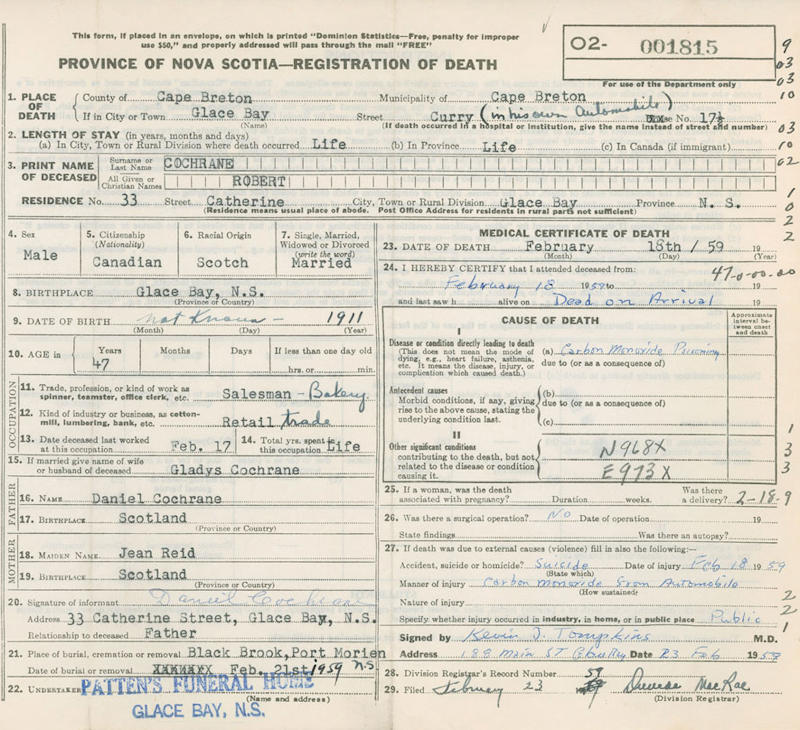 This form, if placed in an envelope, on which is printed "Dominion Statistics—Free, penalty for improper
use $50," and properly addressed will pass through the mail "FREE"
PROVINCE OF NOVA SCOTIA—REGISTRATION OF DEATH
O2- 001815
For use of the Department only
9
03
03
10
03
10
02
1
0
2
2
1. PLACE OF DEATH
County of Cape Breton Municipality of Cape Breton
If in City or Town Glace Bay Street Curry (in his own Automobile) House No. 17½
(Name) (If death occurred in a hospital or institution, give the name instead of street and number)
2. LENGTH OF STAY (in years, months and days)
(a) In City, Town or Rural Division where death occurred Life (b) In Province Life (c) In Canada (if immigrant)
3. PRINT NAME OF DECEASED
Surname or Last Name COCHRANE
All Given or Christian Names ROBERT
RESIDENCE No. 33 Street Catherine City, Town or Rural Division Glace Bay Province N. S.
(Residence means usual place of abode. Post Office Address for residents in rural parts not sufficient)
4. Sex
Male
5. Citizenship
(Nationality)
Canadian
6. Racial Origin
Scotch
7. Single, Married,
Widowed or Divorced
(write the word)
Married
8. BIRTHPLACE Glace Bay, N.S.
(Province or Country)
9. DATE OF BIRTH not Known - 1911
(Month) (Day) (Year)
10. AGE in
Years Months Days If less than one day old
47 hrs. or min.
OCCUPATION
11. Trade, profession, or kind of work as
spinner, teamster, office clerk, etc. Salesman - Bakery.
12. Kind of industry or business, as cotton-
mill, lumbering, bank, etc. Retail trade
13. Date deceased last worked
at this occupation Feb. 17
14. Total yrs. spent in
this occupation Life
15. If married give name of wife
or husband of deceased Gladys Cochrane
FATHER
16. NAME Daniel Cochrane
17. BIRTHPLACE Scotland
(Province or Country)
MOTHER
18. MAIDEN NAME Jean Reid
19. BIRTHPLACE Scotland
(Province or Country)
20. Signature of informant Daniel Cochrane
Address 33 Catherine Street, Glace Bay, N.S.
Relationship to deceased Father
21. Place of burial, cremation or removal Black Brook, Port Morien
N.S.
Date of burial or removal Feb. 21st 1959
22. UNDERTAKER PATTEN'S FUNERAL HOME
(Name and address)
GLACE BAY, N.S.
MEDICAL CERTIFICATE OF DEATH
23. DATE OF DEATH February 18th / 59 19
(Month) (Day) (Year)
24. I HEREBY CERTIFY that I attended deceased from: 47-0-00-00
February 18 1959 to 19
and last saw h alive on Dead on Arrival 19
CAUSE OF DEATH
Approximate
interval be-
tween onset
and death
I
Disease or condition directly leading to death
(This does not mean the mode of
dying, e.g., heart failure, asthenia,
etc. It means the disease, injury, or
complication which caused death.)
(a) Carbon Monoxide Poisoning
due to (or as a consequence of)
Antecedent causes
Morbid conditions, if any, giving
rise to the above cause, stating the
underlying condition last.
(b)
due to (or as a consequence of)
(c)
II
Other significant conditions
contributing to the death, but not
related to the disease or condition
causing it.
N968X
E973X
1
3
3
25. If a woman, was the death
associated with pregnancy? Duration weeks. Was there
a delivery? 2-18-9
26. Was there a surgical operation? No Date of operation 19
State findings Was there an autopsy?
27. If death was due to external causes (violence) fill in also the following:—
Accident, suicide or homicide? Suicide Date of injury Feb 18 1959
(State which)
Manner of injury Carbon monoxide from Automobile
(How sustained)
Nature of injury 2
Specify whether injury occurred in industry, in home, or in public place Public 2
1
Signed by Kevin J. Tompkins M.D.
Address 188 Main ST Date 23 Feb 1959
28. Division Registrar's Record Number 59
29. Filed February 23 MacRae
(Division Registrar)